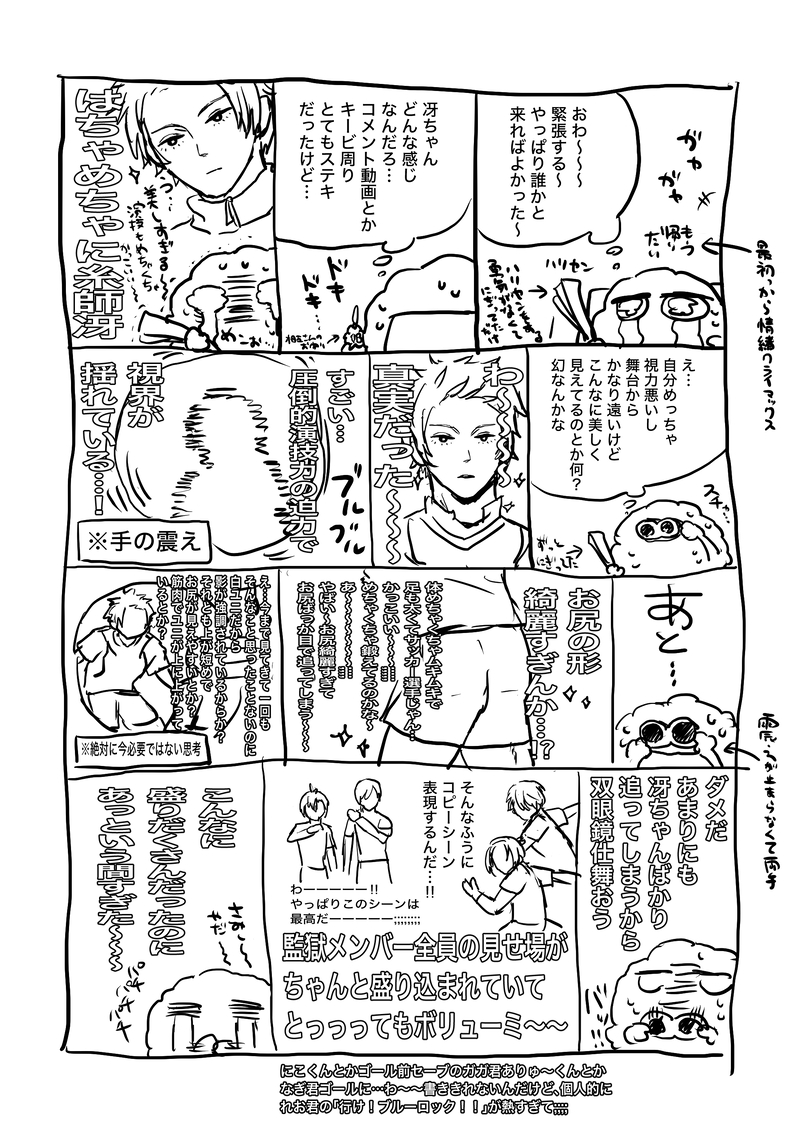 おわ〜〜〜
緊張する〜
やっぱり誰かと
来ればよかった〜
ガヤ
ガヤ
もう
帰り
たい
最初っから情緒クライマックス
ハリセン
冴ちゃん
どんな感じ
なんだろ…
コメント動画とか
キービ周り
とてもステキ
だったけど…
ドキ
ドキ…
美しすぎる〜
演技もめちゃくちゃ
めーお
ばちゃめちゃに糸師冴
え…
自分めっちゃ
視力悪いし
舞台から
かなり遠いけど
こんなに美しく
見えてるのとか何?
幻なんかな
スチャ…
ずっと
にぎってた
わ〜〜〜
真実だった〜〜〜
すごい…
圧倒的演技力の迫力で
視界が
揺れている…!
ブル
ブル
※手の震え
あと…
震えが止まらなくて両手
お尻の形
綺麗すぎんか…!?
体めちゃくちゃムキムキで
足も太くてサッカー選手じゃん…
かっこいい…!!!
めちゃくちゃ鍛えてるのかな〜
あ〜〜〜〜〜〜!!!
やばい〜お尻綺麗すぎて
お尻ばっか目で追ってしまう〜〜〜
え…今まで見てきて一回も
そんなこと思ったことないのに
白ユニだから
影が強調されているからか?
それとも上が短めで
お尻が見えやすいとか?
筋肉でユニが上に上がって
いるとか?
※絶対に今必要ではない思考
ダメだ
あまりにも
冴ちゃんばかり
追ってしまうから
双眼鏡仕舞おう
そんなふうに
コピーシーン
表現するんだ…!!
わーーーーー!!
やっぱりこのシーンは
最高だーーーーー;;;;;;;;
監獄メンバー全員の見せ場が
ちゃんと盛り込まれていて
とっっってもボリューミ〜〜
こんなに
盛りだくさんだったのに
あっという間すぎた〜〜〜
さみし〜
やだ〜
パチ
パチ
にこくんとかゴール前セーブのガガ君ありゅ〜くんとか
なぎ君ゴールに…わ〜〜書ききれないんだけど、個人的に
れお君の「行け！ブルーロック！！」が熱すぎて;;;;